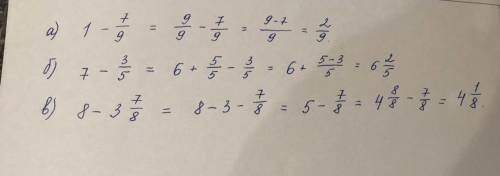 а) 1 - 7/9 = 9/9 - 7/9 = (9-7)/9 = 2/9.
б) 7 - 3/5 = 6 + 5/5 - 3/5 = 6 + (5-3)/5 = 6 2/5
в) 8 - 3 7/8 = 8 - 3 - 7/8 = 5 - 7/8 = 4 8/8 - 7/8 = 4 1/8.